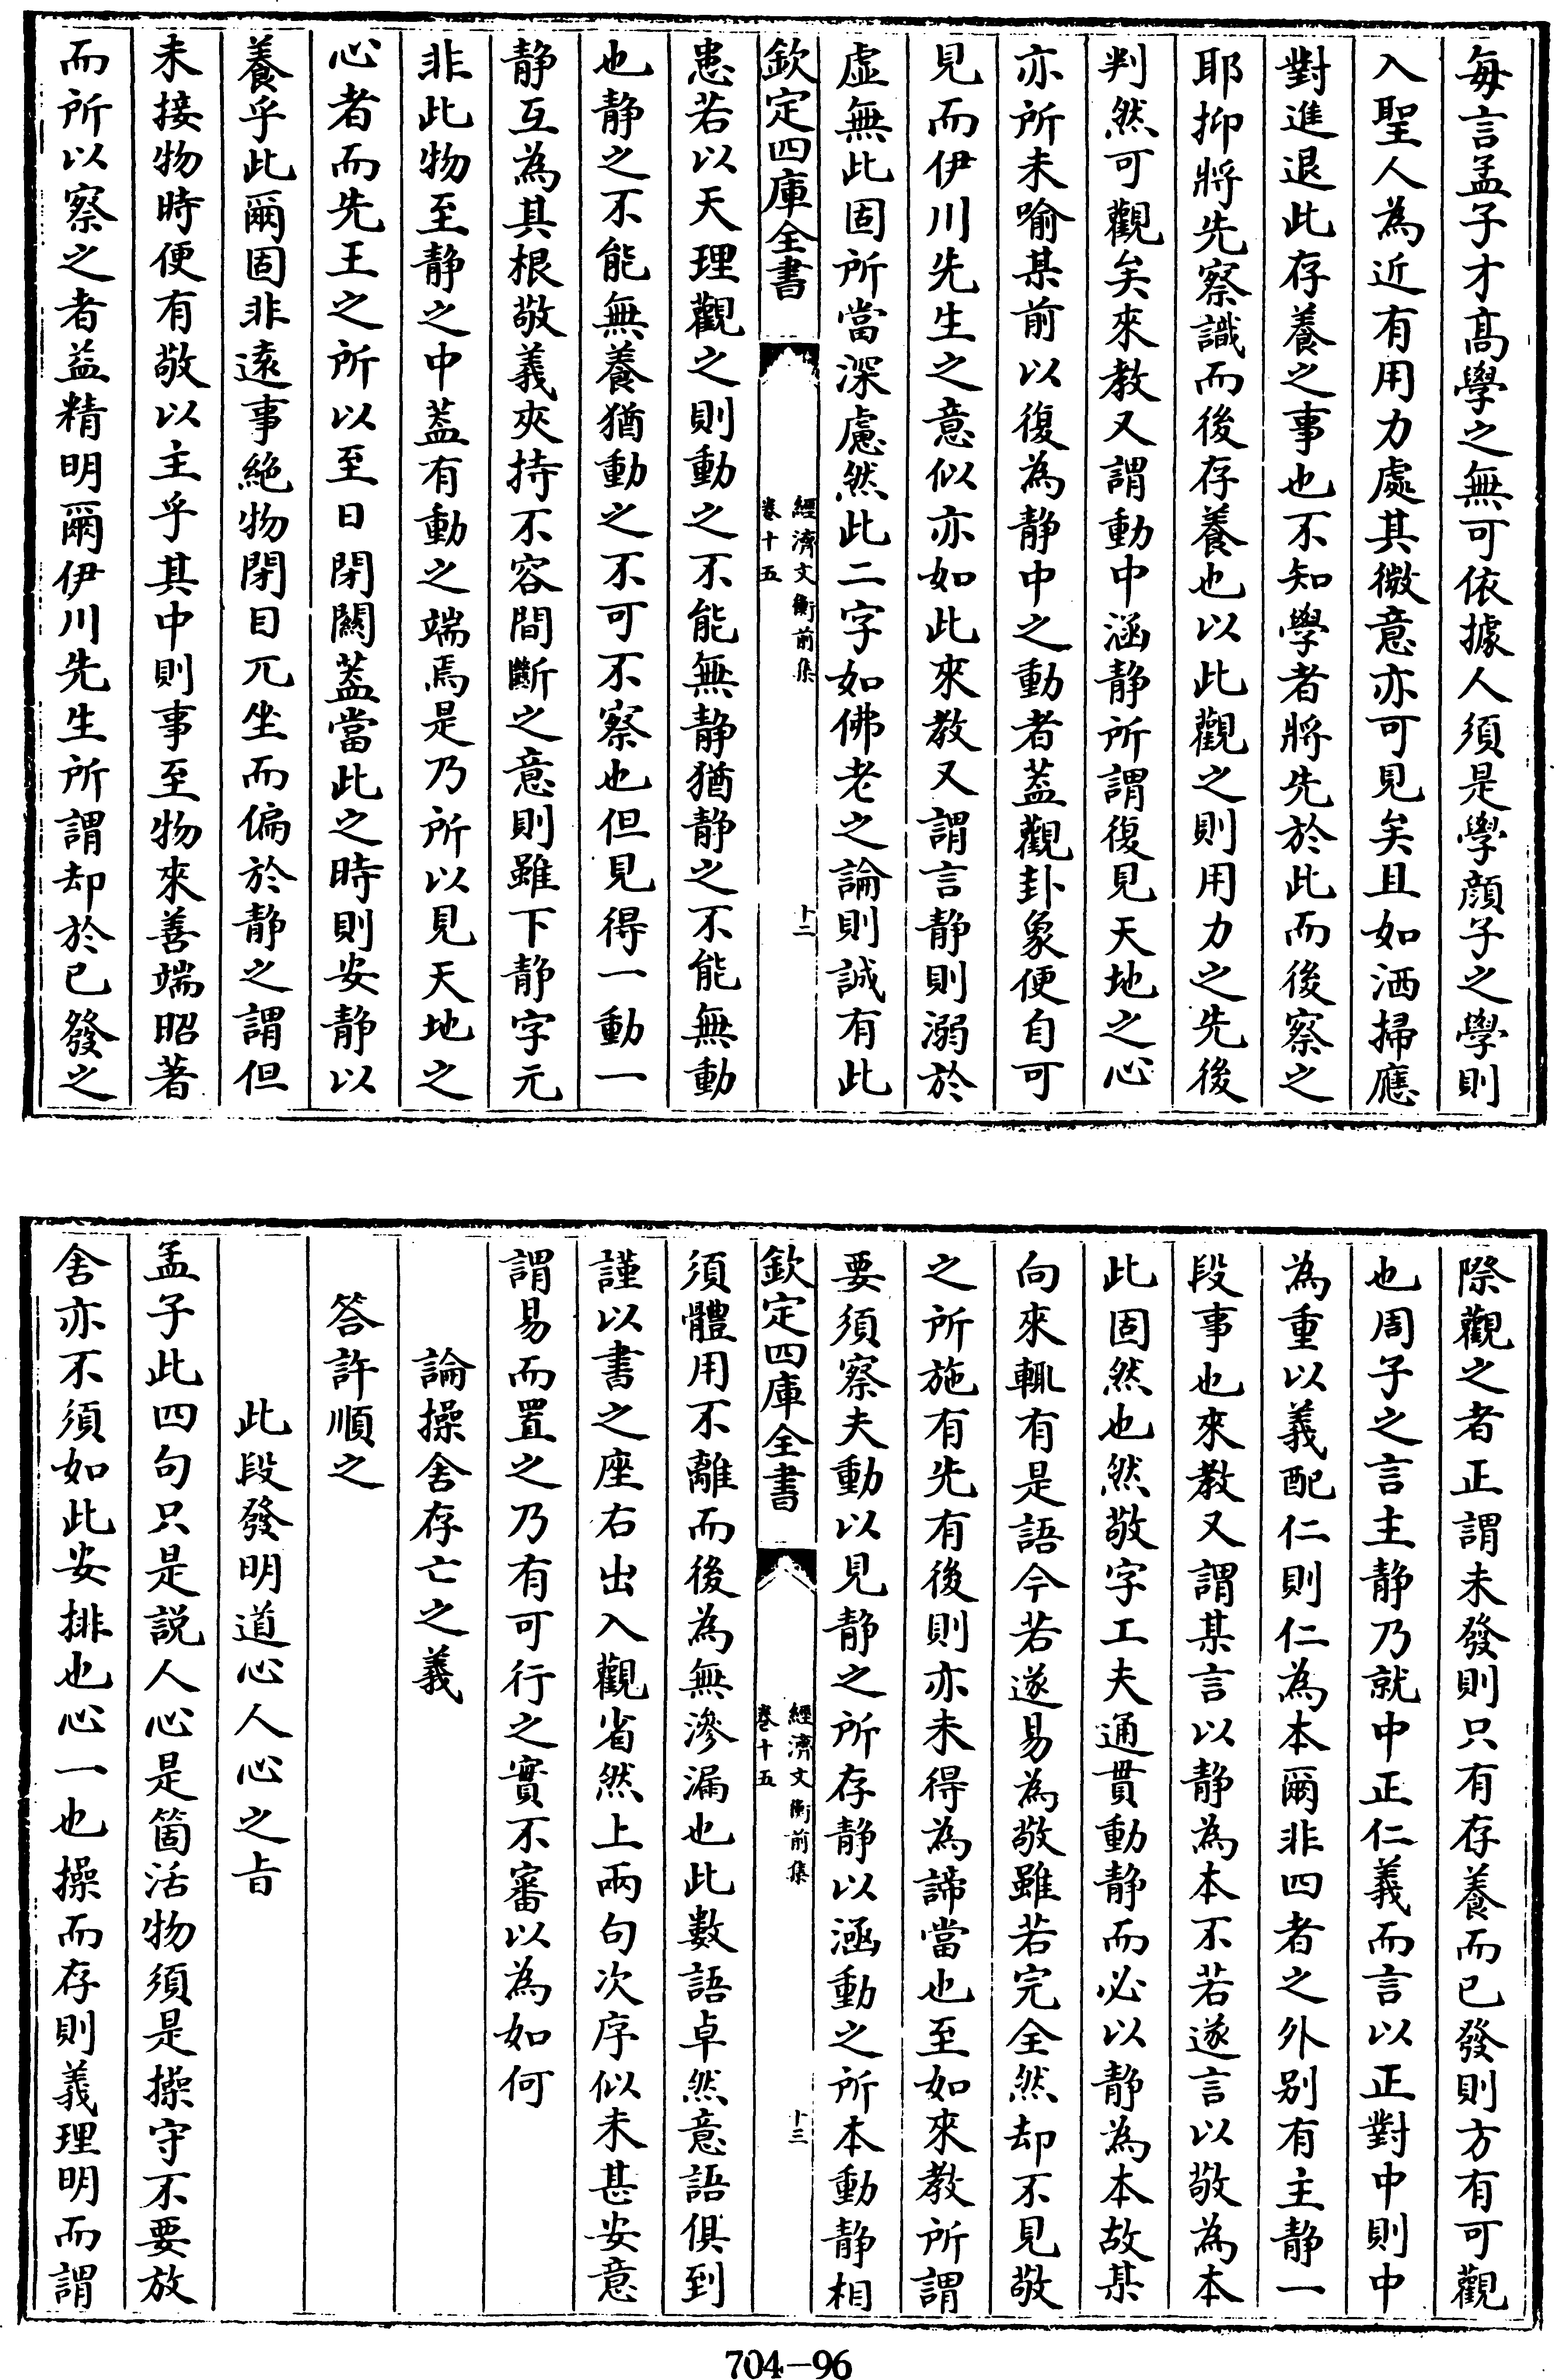 每言孟子才髙學之無可依據人須是學顔子之學則
入聖人為近有用力處其微意亦可見矣且如洒掃應
對進退此存養之事也不知學者將先於此而後察之
耶抑將先察識而後存養也以此觀之則用力之先後
判然可觀矣來教又謂動中涵静所謂復見天地之心
亦所未喻某前以復為静中之動者葢觀卦象便自可
見而伊川先生之意似亦如此來教又謂言静則溺於
虚無此固所當深慮然此二字如佛老之論則誠有此
欽定四庫全書
經濟文衡前集
卷十五
十二
患若以天理觀之則動之不能無静猶静之不能無動
也静之不能無養猶動之不可不察也但見得一動一
静互為其根敬義夾持不容間斷之意則雖下静字元
非此物至静之中葢有動之端焉是乃所以見天地之
心者而先王之所以至日閉闗葢當此之時則安静以
養乎此爾固非逺事絶物閉目兀坐而偏於静之謂但
未接物時便有敬以主乎其中則事至物來善端昭著
而所以察之者益精明爾伊川先生所謂却於已發之
際觀之者正謂未發則只有存養而已發則方有可觀
也周子之言主静乃就中正仁義而言以正對中則中
為重以義配仁則仁為本爾非四者之外别有主静一
段事也來教又謂某言以静為本不若遂言以敬為本
此固然也然敬字工夫通貫動静而必以静為本故某
向來輒有是語今若遂易為敬雖若完全然却不見敬
之所施有先有後則亦未得為諦當也至如來教所謂
要須察夫動以見静之所存静以涵動之所本動静相
欽定四庫全書
經濟文衡前集
卷十五
十三
須體用不離而後為無滲漏也此數語卓然意語俱到
謹以書之座右出入觀省然上兩句次序似未甚安意
謂易而置之乃有可行之實不審以為如何
論操舍存亡之義
答許順之
此段發明道心人心之㫖
孟子此四句只是説人心是箇活物須是操守不要放
舍亦不須如此安排也心一也操而存則義理明而謂
704-96